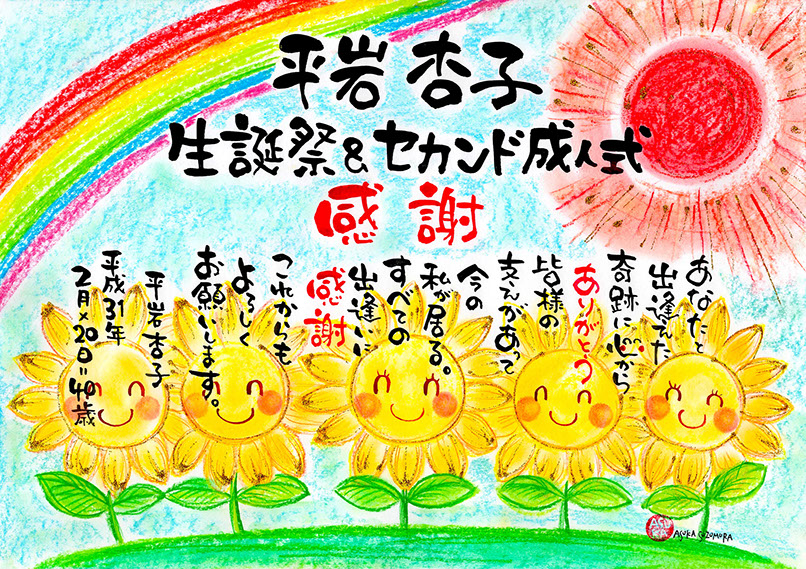 平岩 杏子
生誕祭&セカンド成人式
感謝
あなたと
出逢えた
奇跡に心から
ありがとう
皆様の
支えがあって
今の
私が居る。
すべての
出逢いに
感謝
これからも
よろしく
お願いします。
平岩杏子
平成31年
2月×20日=40歳
ASUKA